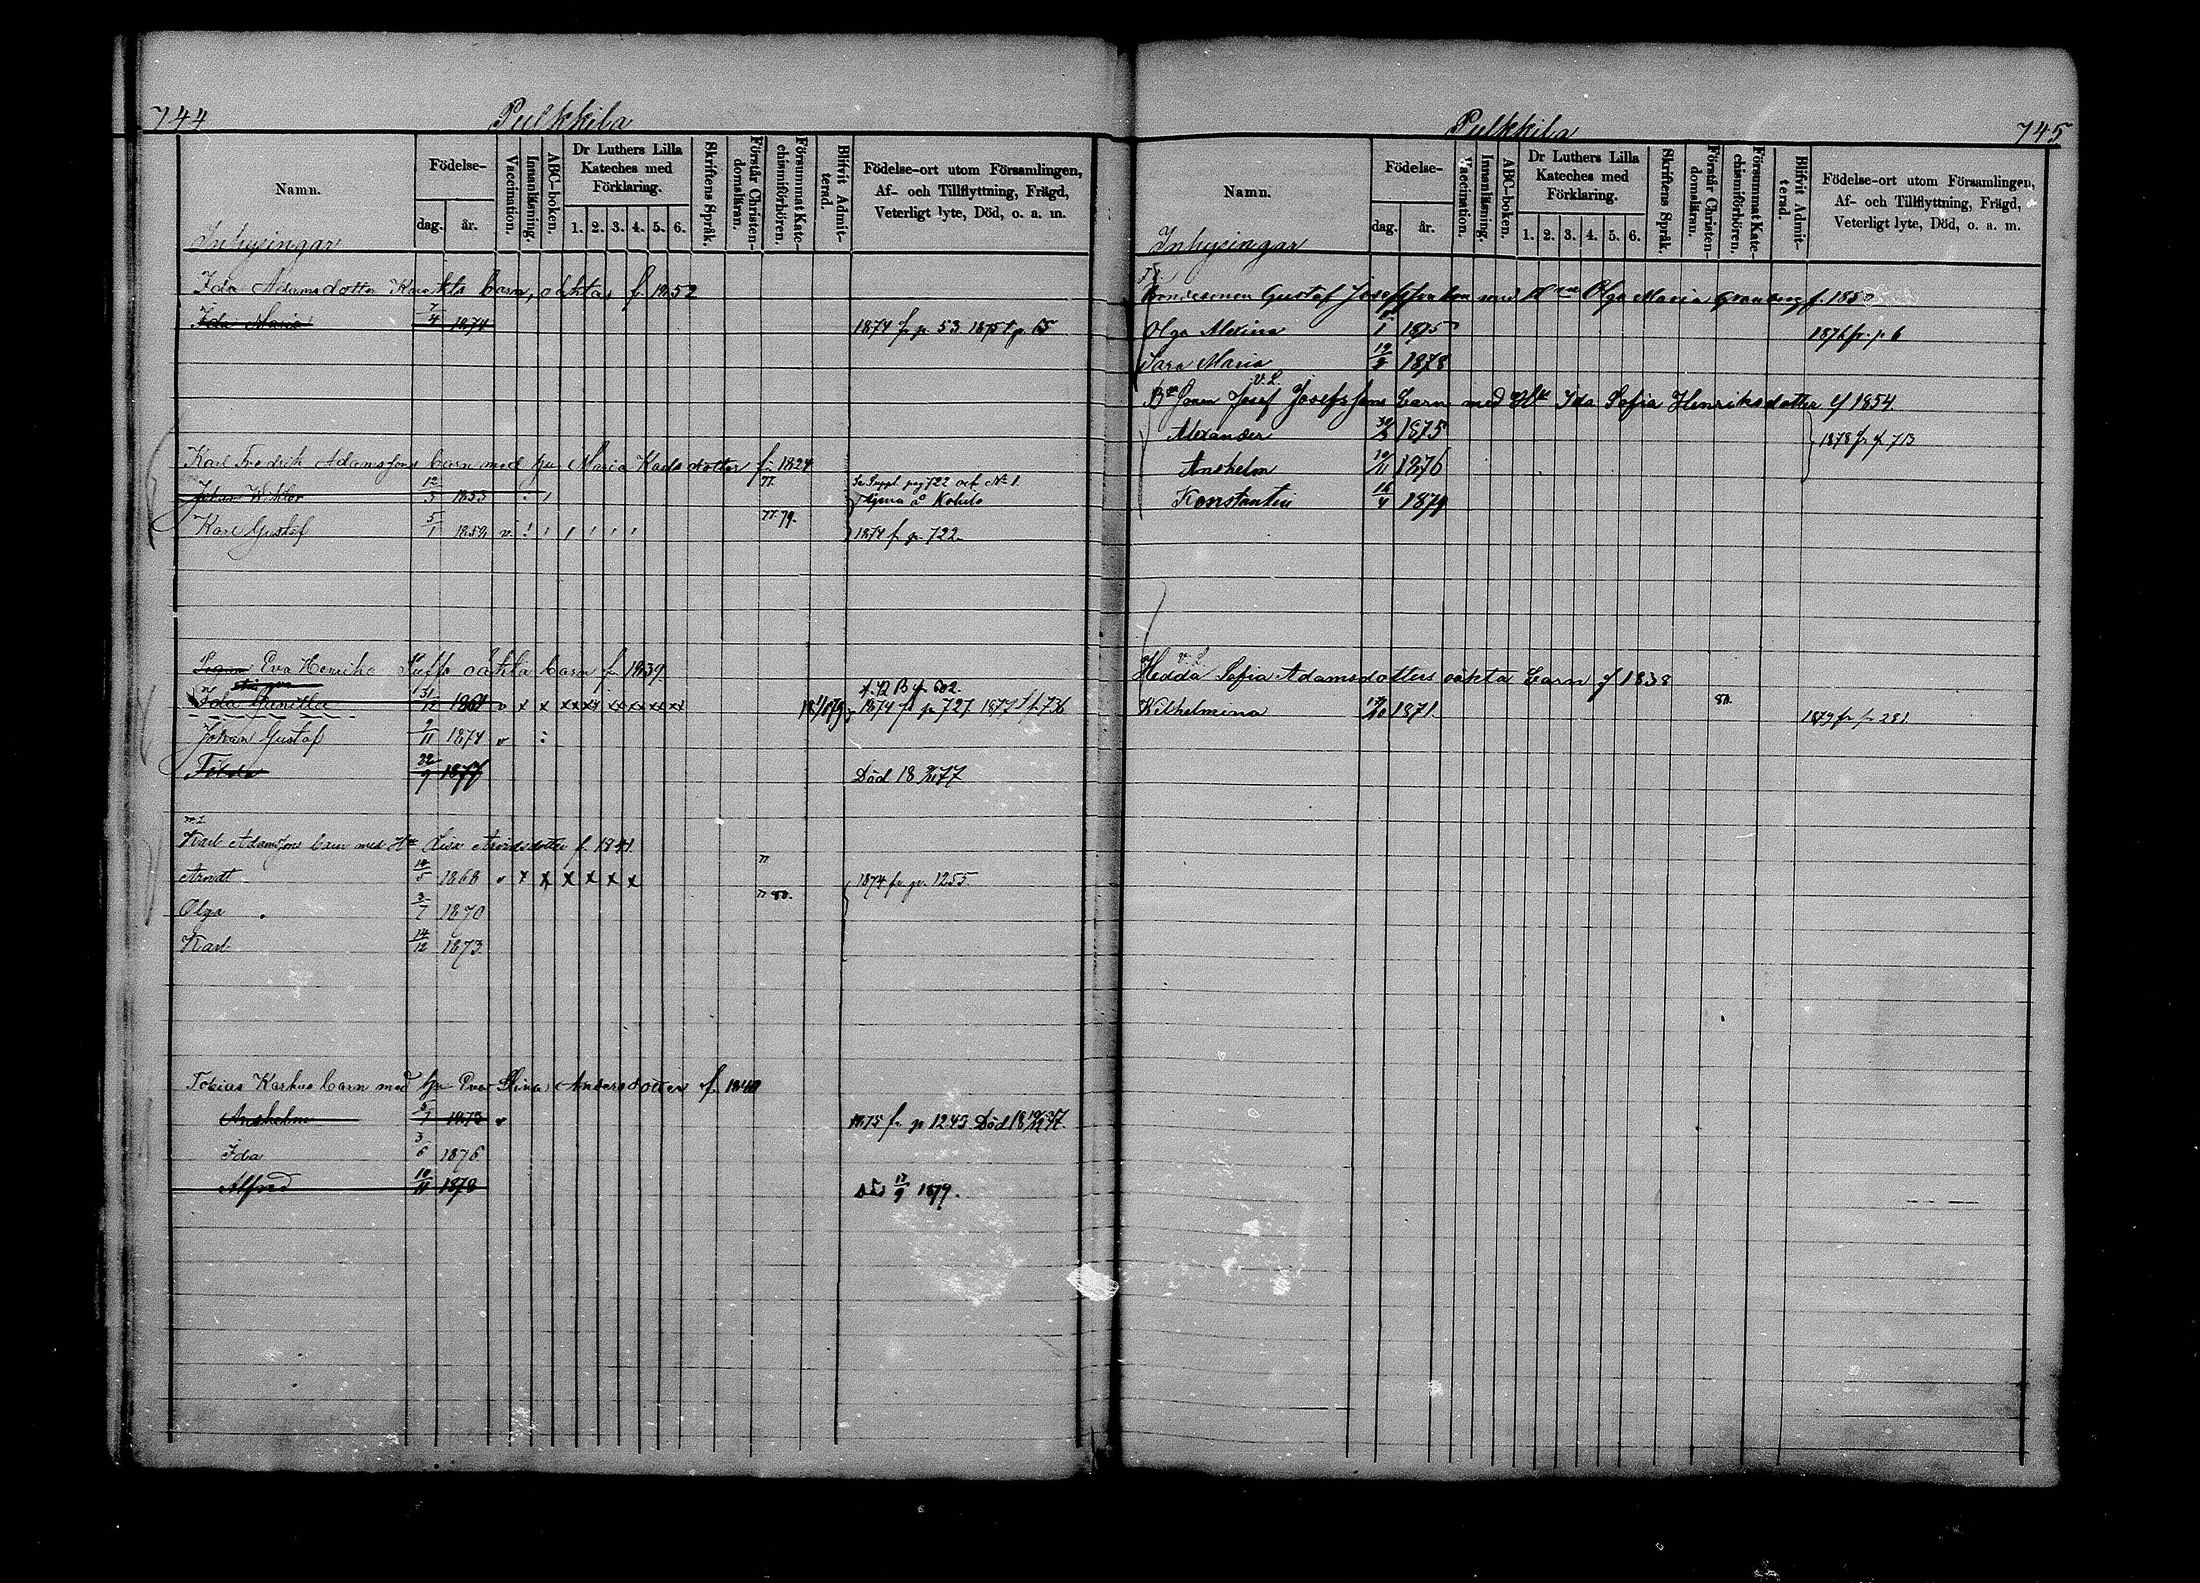 744
Pulkkila
Namn.
Födelse-
dag.
år.
Vaccination.
Innanläsning.
ABC-boken.
Dr Luthers Lilla
Kateches med
Förklaring.
1. 2. 3. 4. 5. 6.
Skriftens Språk.
Förstår Christen-
domsläran.
Försummat Kate-
chismiförhören.
Blifvit Admit-
terad.
Födelse-ort utom Församlingen,
Af- och Tillflyttning, Frägd,
Veterligt lyte, Död, o. a. m.
Inhysingar
Ida Adamsdotter barn, oäktas f. 1852
Ida Maria 7/4 1874 1874 fr p. 53 1875 t p. 65
Karl Fredrik Adamssons barn med hu Maria Karlsdotter f. 1824
Johan Wiktor 12/3 1855 77 Se Suppl. pag 722 och No 1.
Karl Gustaf 5/1 1852 v 77. 79. 1874 f p. 722.
Eva Henrika oäkta barn f. 1839
Ida 31/12 v x x xx xx xx xx xx 1874 f p 727 1877 t p. 736
Johan Gustaf 9/11 1874 v
1877 Död 18 77
Karl Adamssons barn med Hu Lisa Arvidsdotter f. 1841
77
Arvidt 14/5 1868 v x x x x x x 1874 fr. p. 1255.
77 80.
Olga 3/7 1870
Karl 14/12 1873
Tobias Karhus barn med hu Eva Stina Andersdotter f. 1840
Anshelm 5/7 1873 v 1875 fr p 1243. Död 18
Ida 3/6 1876
Alfred 10/11 1878 Död 17/9 1879.
Pulkkila
745
Namn.
Födelse-
dag.
år.
Vaccination.
Innanläsning.
ABC-boken.
Dr Luthers Lilla
Kateches med
Förklaring.
1. 2. 3. 4. 5. 6.
Skriftens Språk.
Förstår Christen-
domsläran.
Försummat Kate-
chismiförhören.
Blifvit Admit-
terad.
Födelse-ort utom Församlingen,
Af- och Tillflyttning, Frägd,
Veterligt lyte, Död, o. a. m.
Inhysingar
Bondesonen Gustaf Josefssons med Olga Maria f. 1850
Olga Alexina 1875 1876 fr. p. 6
Sara Maria 19/9 1878
v. L.
Josef Josefssons barn med Hu Ida Sofia Henriksdotter f 1854.
Alexander 30/3 1875 1878 fr p 713
Anshelm 10/11 1876
Konstantin 16/4 1879
v. L.
Hedda Sofia Adamsdotters oäkta barn f 1838
Wilhelmina 1871. 80. 1879 fr p. 281